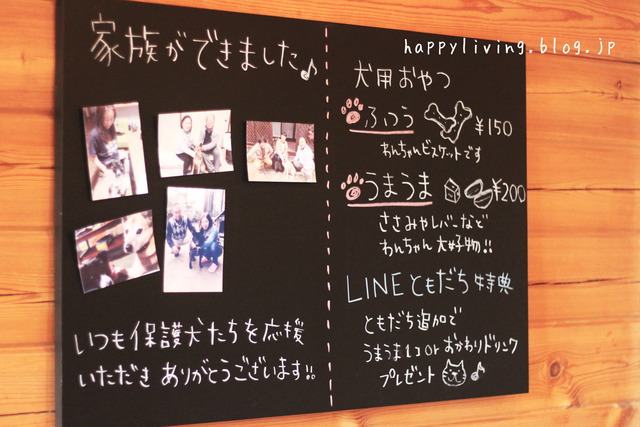 happyliving.blog.jp
家族ができました♪
いつも保護犬たちを応援
いただきありがとうございます!!
犬用おやつ
ふつう ¥150
わんちゃんビスケットです
うまうま ¥200
ささみやレバーなど
わんちゃん大好物!!
LINEともだち特典
ともだち追加で
うまうま1コorおかわりドリンク
プレゼント♪